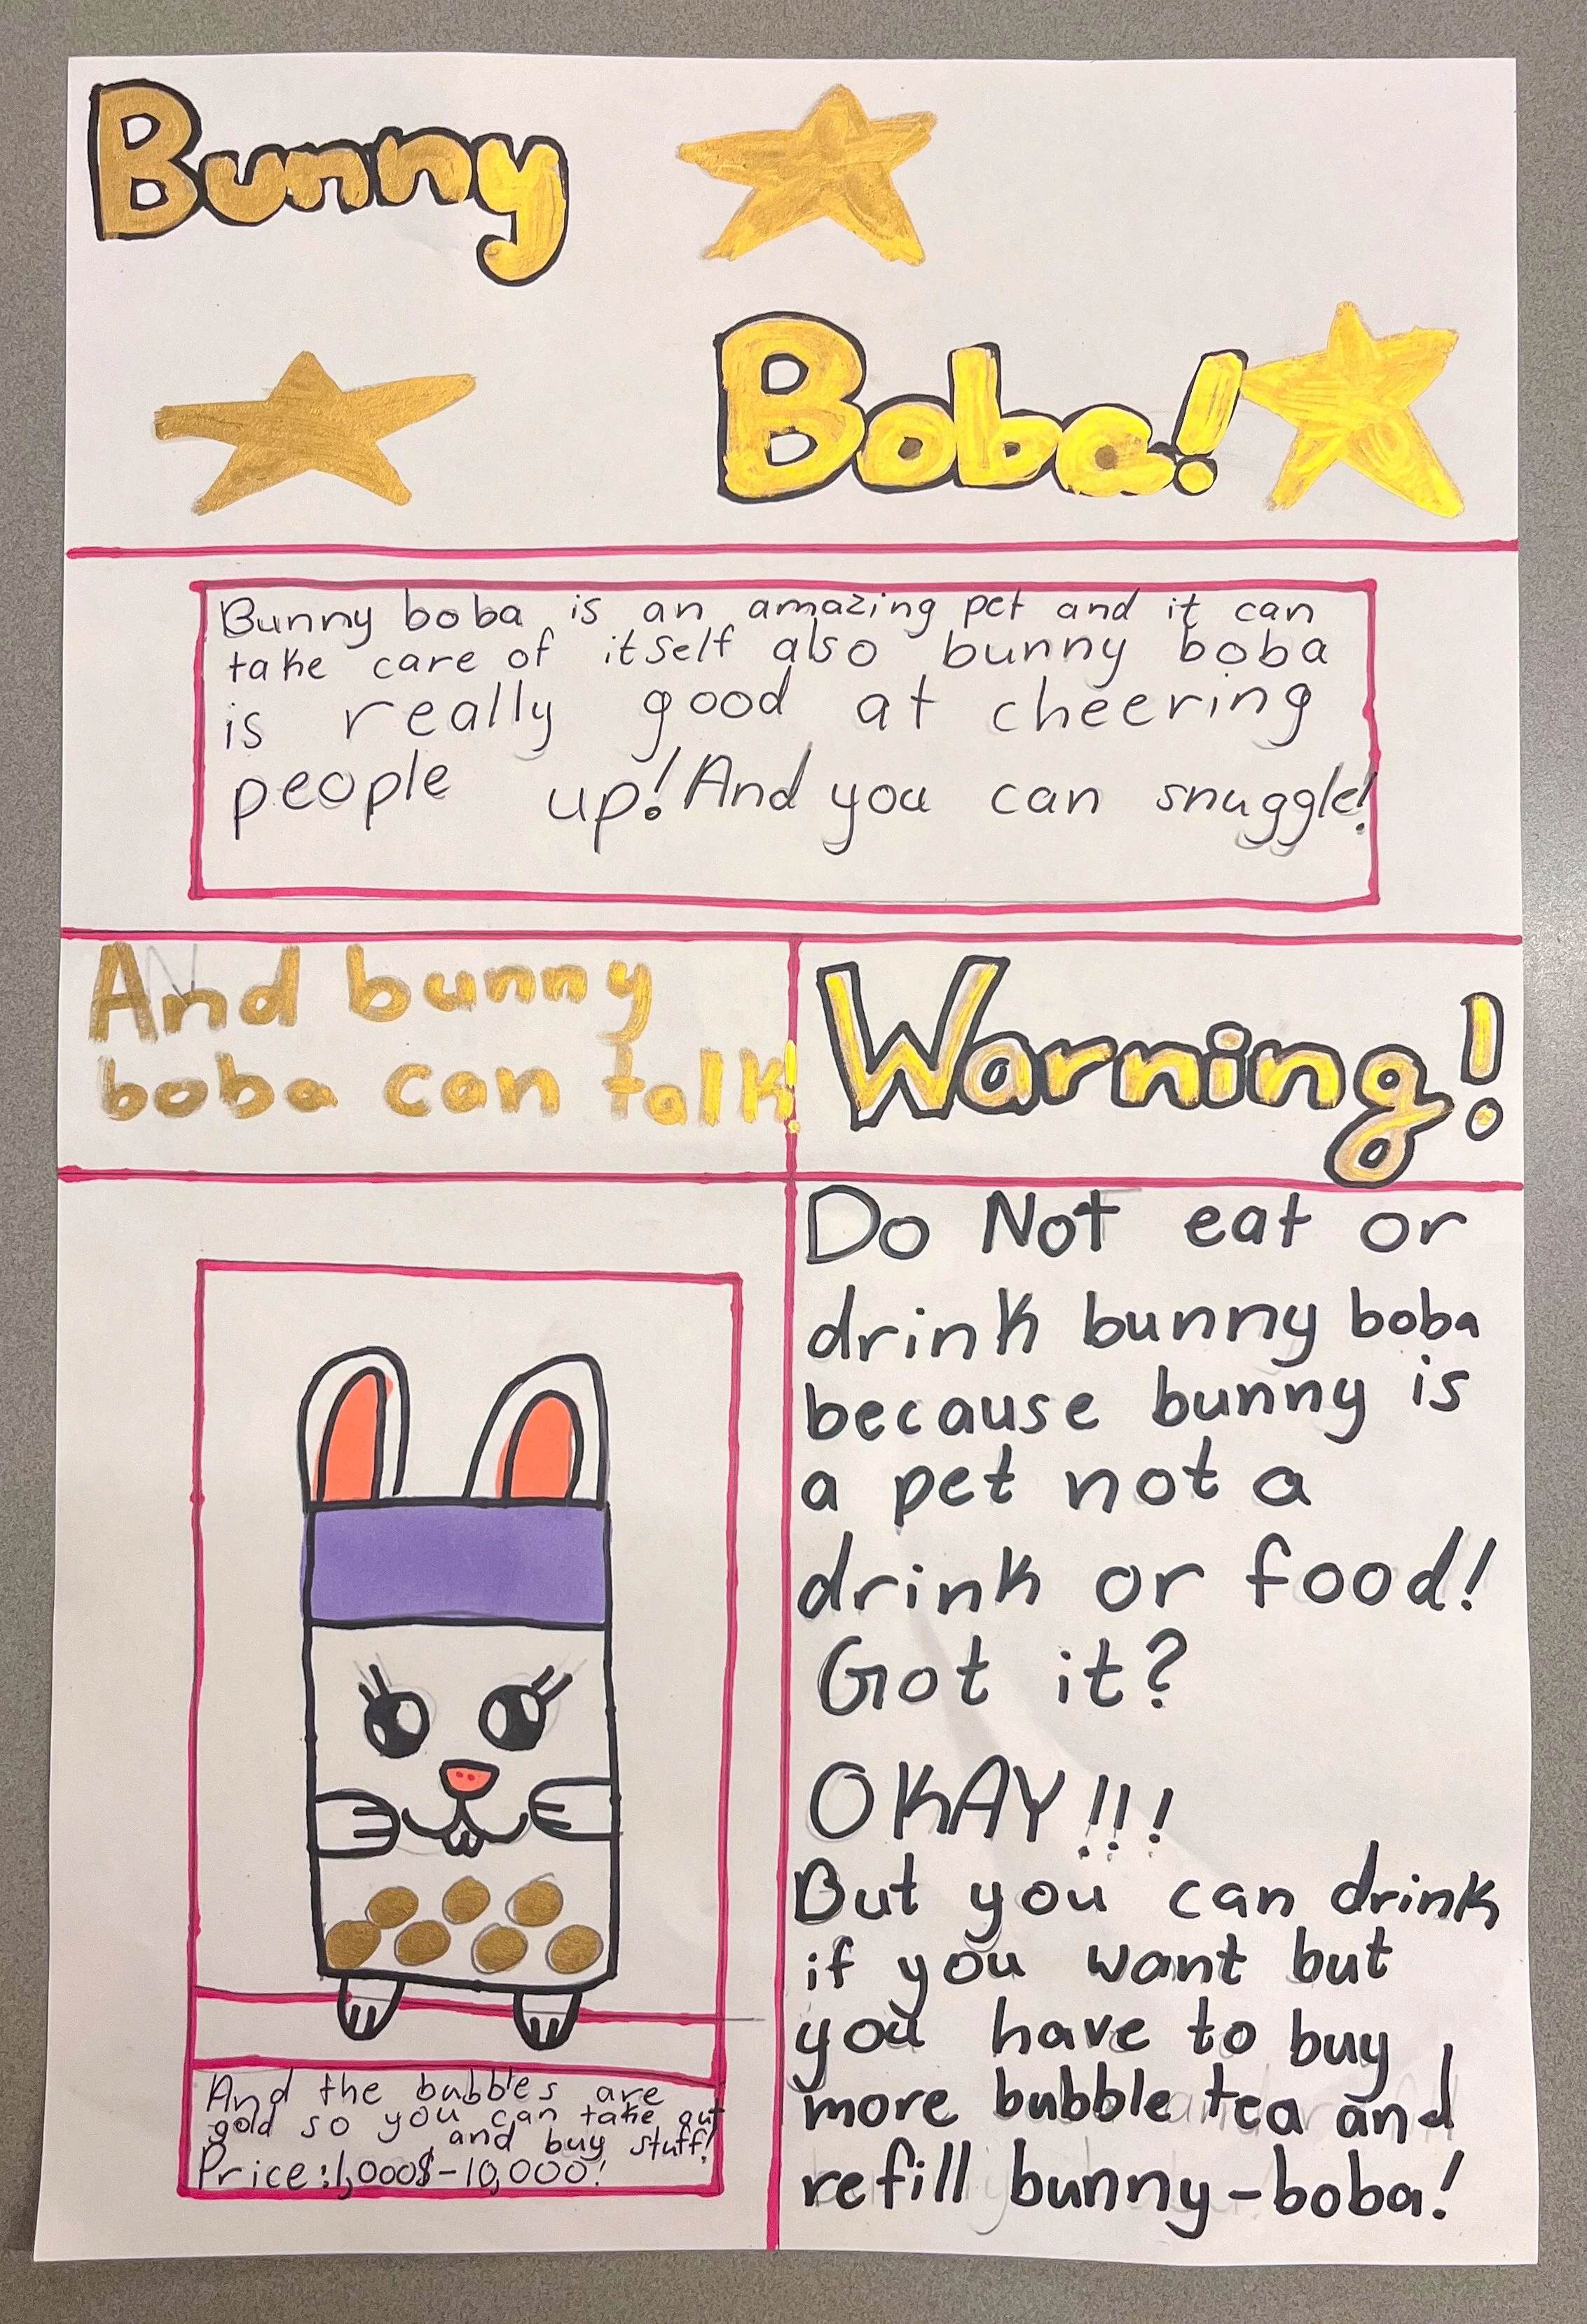 Bunny
Boba!
Bunny boba is an amazing pet and it can
take care of itself also bunny boba
is really good at cheering
people up! And you can snuggle!
And bunny
boba can talk!
Warning!
Do Not eat or
drink bunny boba
because bunny is
a pet not a
drink or food!
Got it?
OKAY!!!
But you can drink
if you want but
you have to buy
more bubble tea and
refill bunny-boba!
And the bubbles are
gold so you can take out
and buy stuff!
Price:1,000$-10,000!